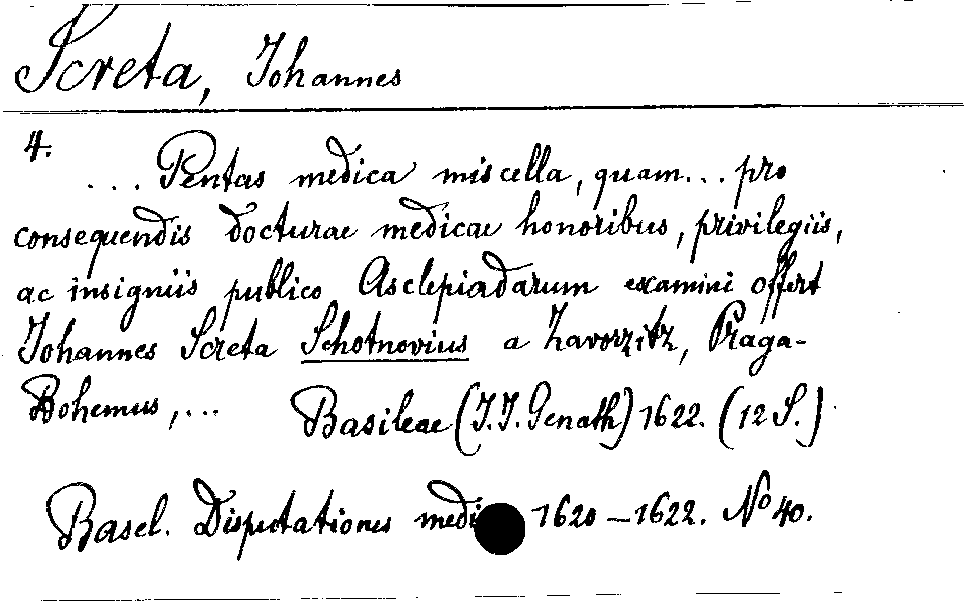 Screta, Johannes
4.
... Pentas medica miscella, quam... pro
consequendis docturae medicae honoribus, privilegiis,
ac insigniis publico Asclepiadarum examini offert
Johannes Screta Schotnovius a Zavorzitz, Praga-
Bohemus,... Basileae (J.J. Genath) 1622. (12 S.)
Basel. Disputationes medi 1620-1622. No 40.